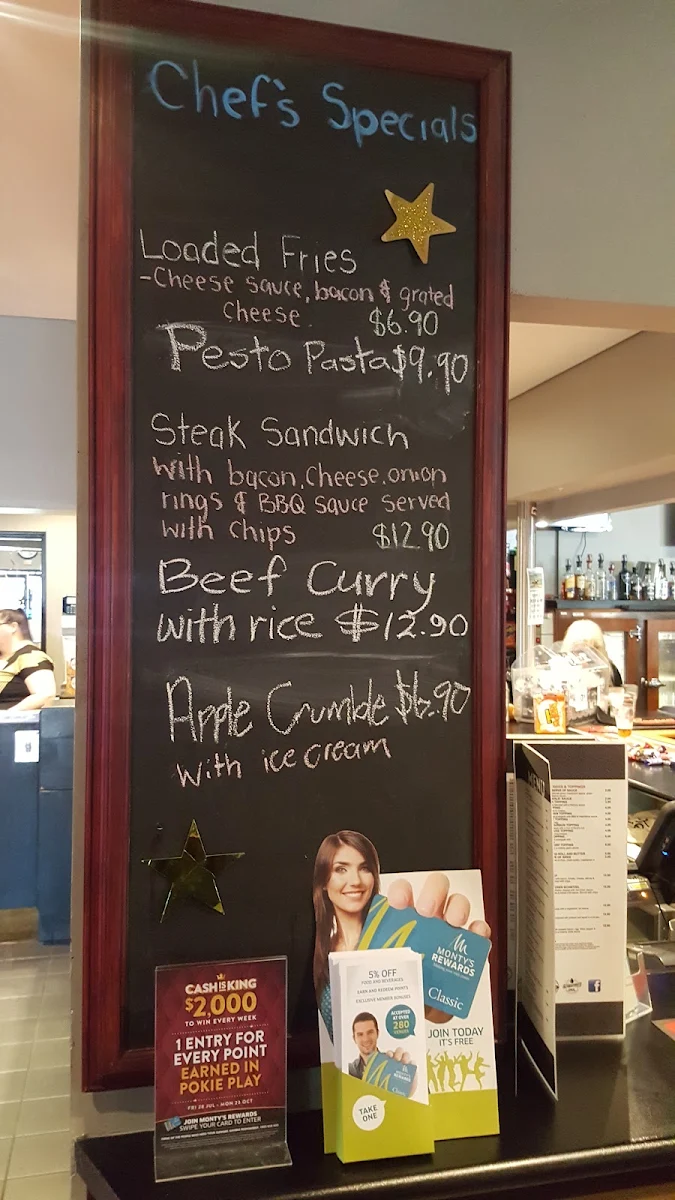 Chef's Specials
Loaded Fries
-Cheese sauce, bacon & grated
cheese. $6.90
Pesto Pasta $9.90
Steak Sandwich
with bacon, cheese, onion
rings & BBQ sauce served
with chips $12.90
Beef Curry
with rice $12.90
Apple Crumble $6.90
with ice cream
CASH IS KING
$2,000
TO WIN EVERY WEEK
1 ENTRY FOR
EVERY POINT
EARNED IN
POKIE PLAY
FRI 28 JUL - MON 23 OCT
JOIN MONTY'S REWARDS
SWIPE YOUR CARD TO ENTER
5% OFF
FOOD AND BEVERAGES
EARN AND REDEEM POINTS
EXCLUSIVE MEMBER BONUSES
ACCEPTED
AT OVER
280
VENUES
TAKE
ONE
MONTY'S
REWARDS
Classic
JOIN TODAY
IT'S FREE
MENU